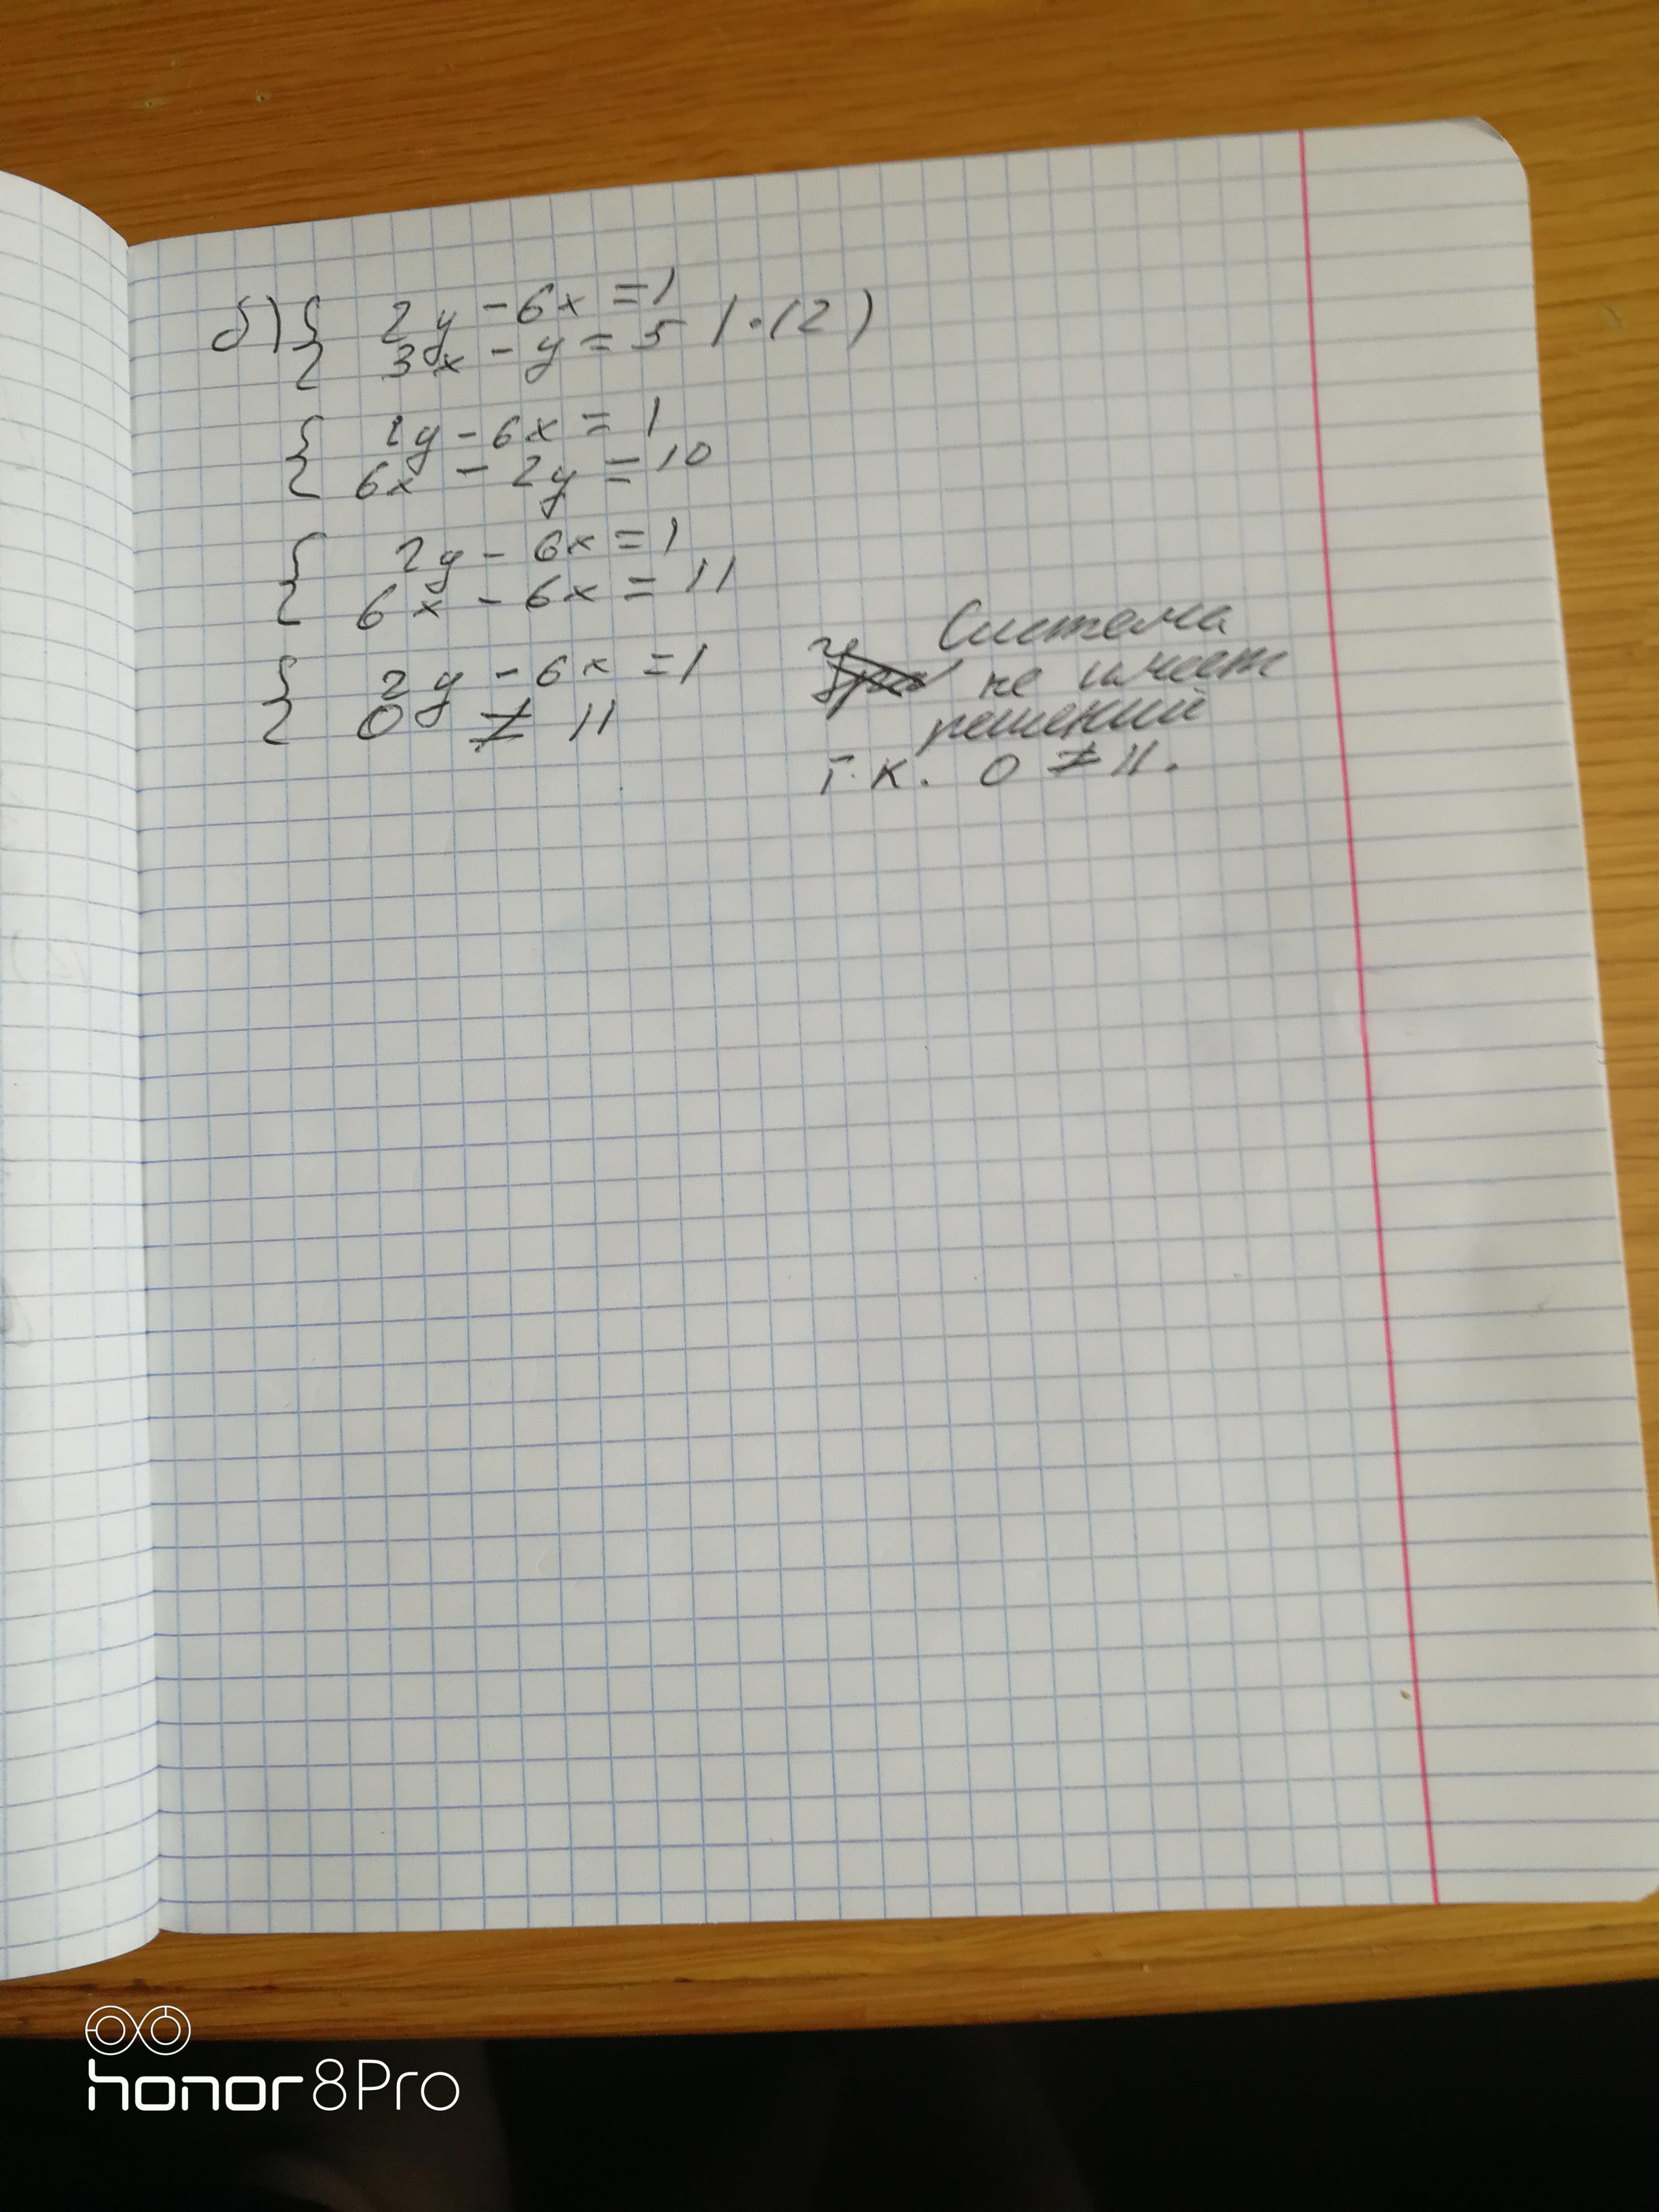 б) { 2y - 6x = 1
3x - y = 5 | · (2)
{ 2y - 6x = 1
6x - 2y = 10
{ 2y - 6x = 1
6x - 6x = 11
{ 2y - 6x = 1
0 ≠ 11
Система
не имеет
решений
т.к. 0 ≠ 11.
honor 8 Pro